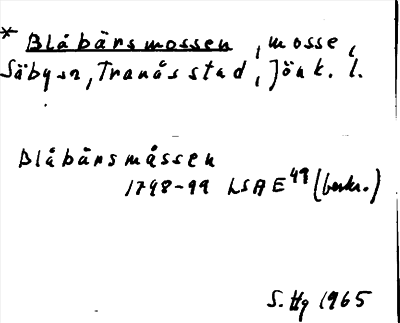 * Blåbärsmossen, mosse,
Säby sn, Tranås stad, Jönk. l.
Blåbärsmåssen
1798-99 LSA E49 (beskr.)
S. Hg 1965